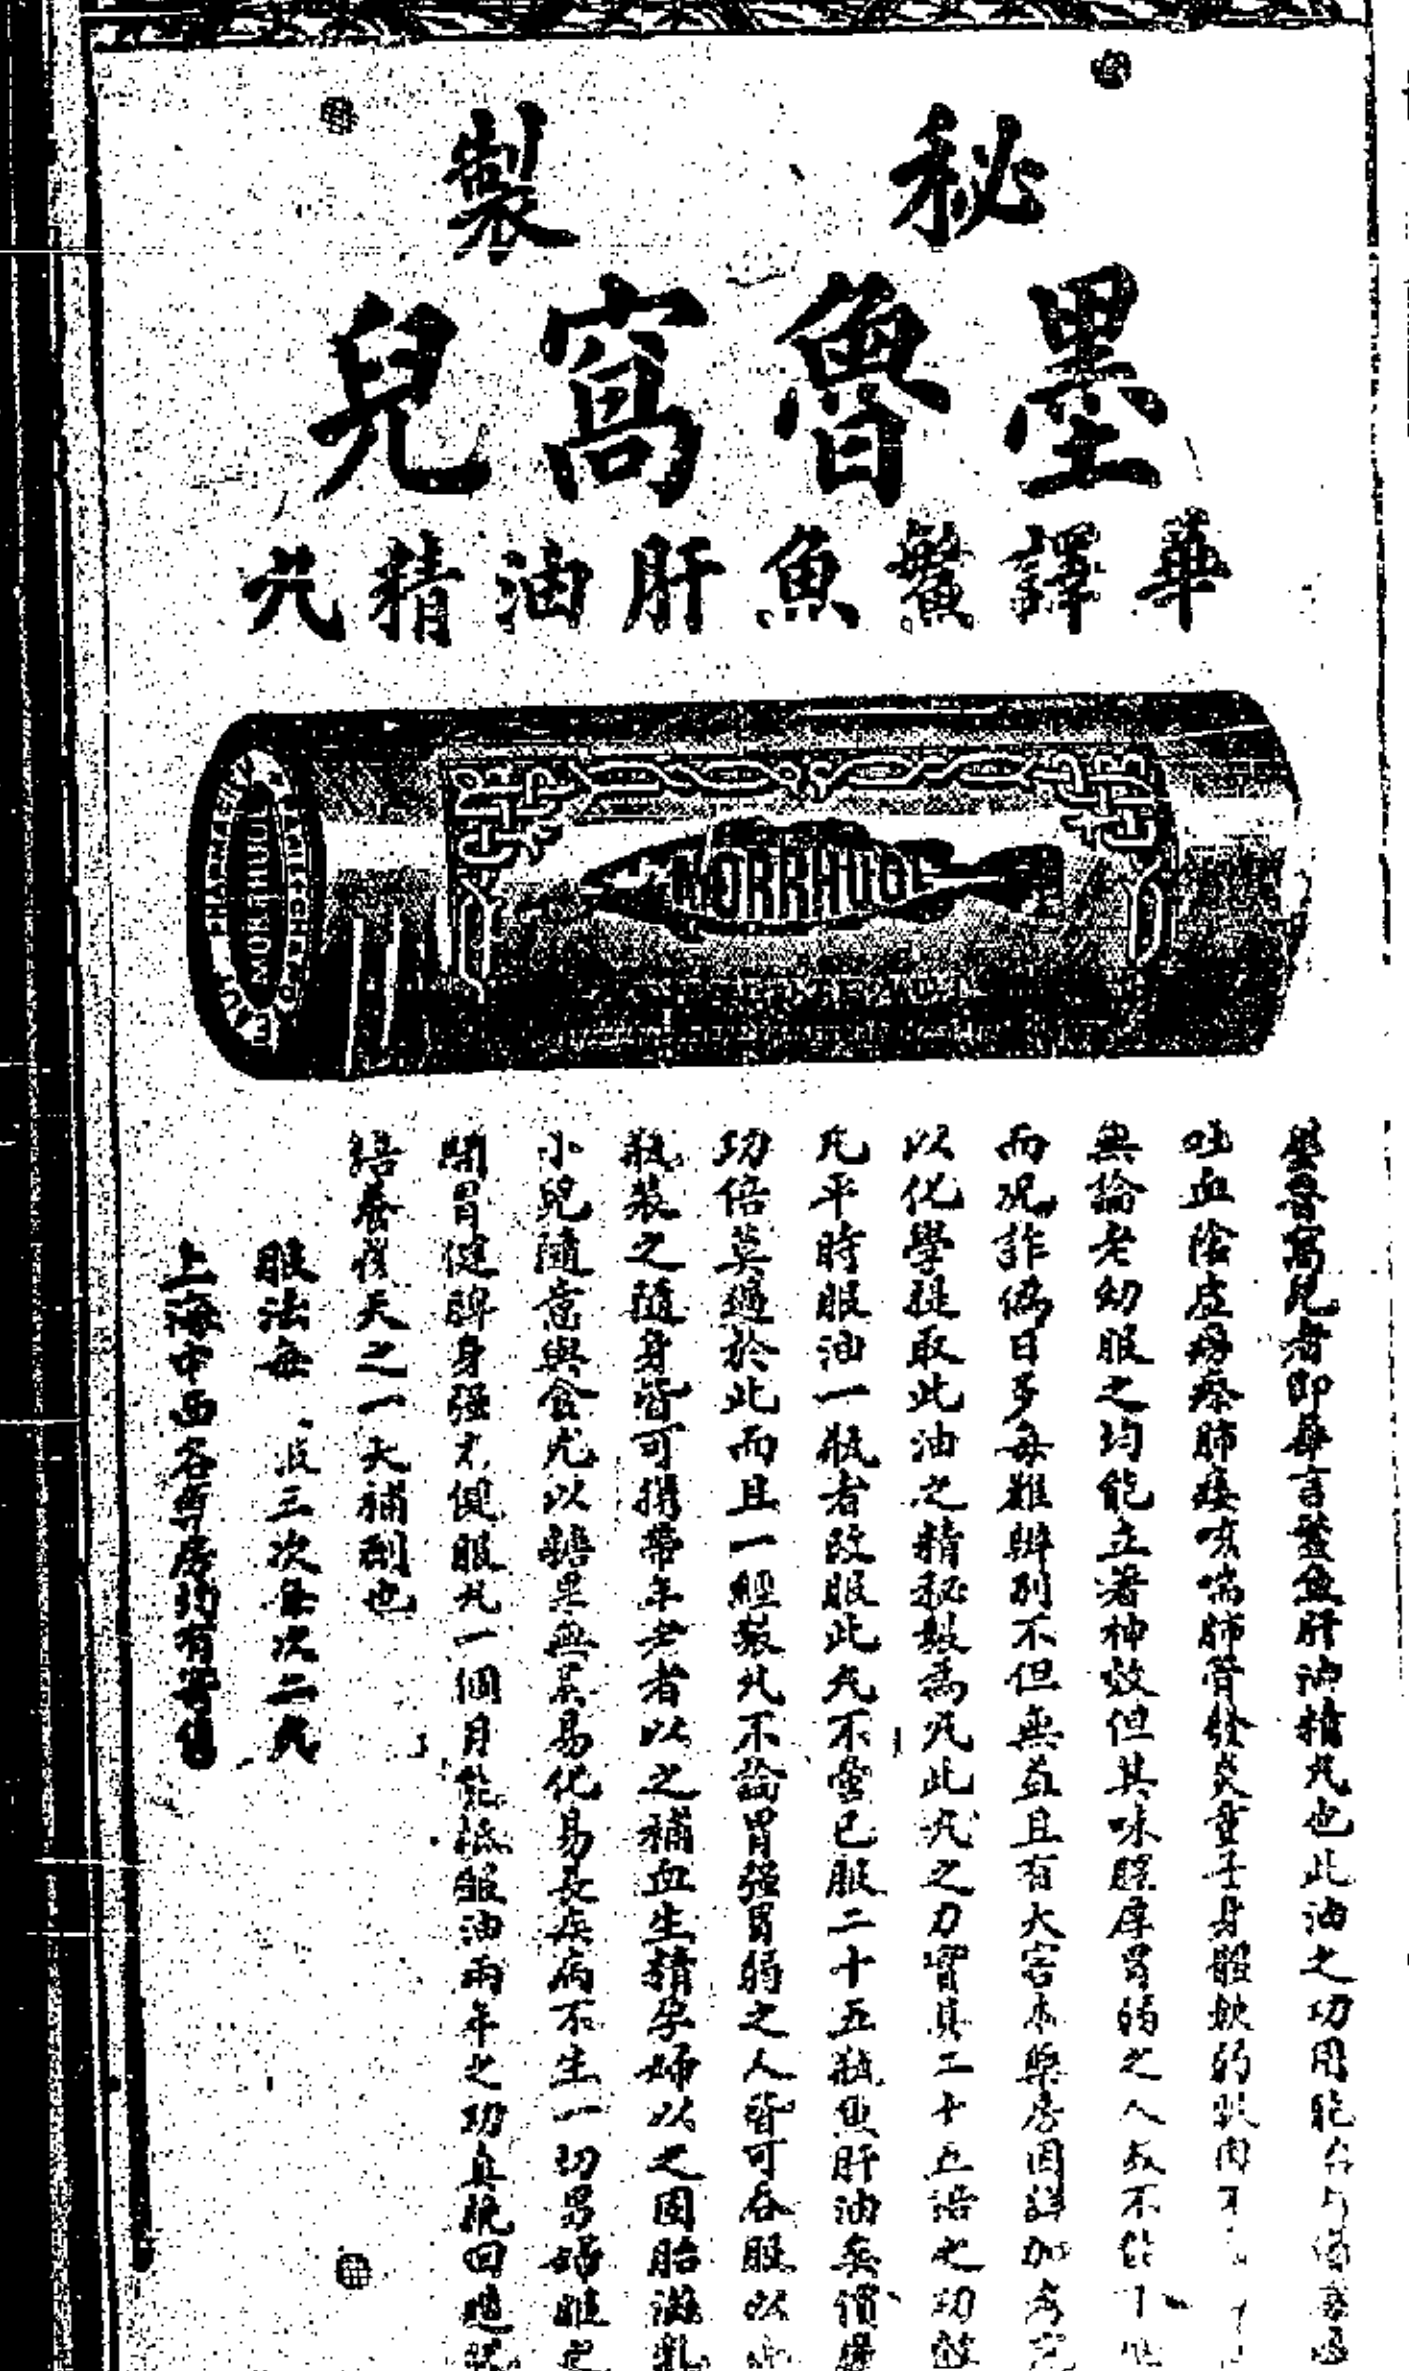 秘製
墨魯窩兒
華譯鱉魚肝油精丸
MORRHUOL
MORRHUOL
墨魯窩兒者即華言鱉魚肝油精丸也此油之功用能治
吐血陰虛癆瘵肺痿咳喘肺管發炎童子身體軟弱肌肉不
無論老幼服之均能立著神效但其味腥厚胃弱之人每不能下
而况詐偽日多每難辨別不但無益且有大害本藥房因詳加考究
以化學提取此油之精秘製為丸此丸之力實具二十五倍之功能
凡平時服油一瓶者改服此丸不啻已服二十五瓶魚肝油矣價廉
功倍莫過於此而且一經製丸不論胃强胃弱之人皆可吞服以
瓶裝之隨身皆可攜帶年老者以之補血生精孕婦以之固胎滋乳
小兒隨意與食尤以糖果無異易化易長疾病不生一切男婦
開胃健脾身强力健服丸一個月能抵服油兩年之功真挽回
培養後天之一大補劑也
服法每 三次每次二丸
上海中西各藥房均有寄售